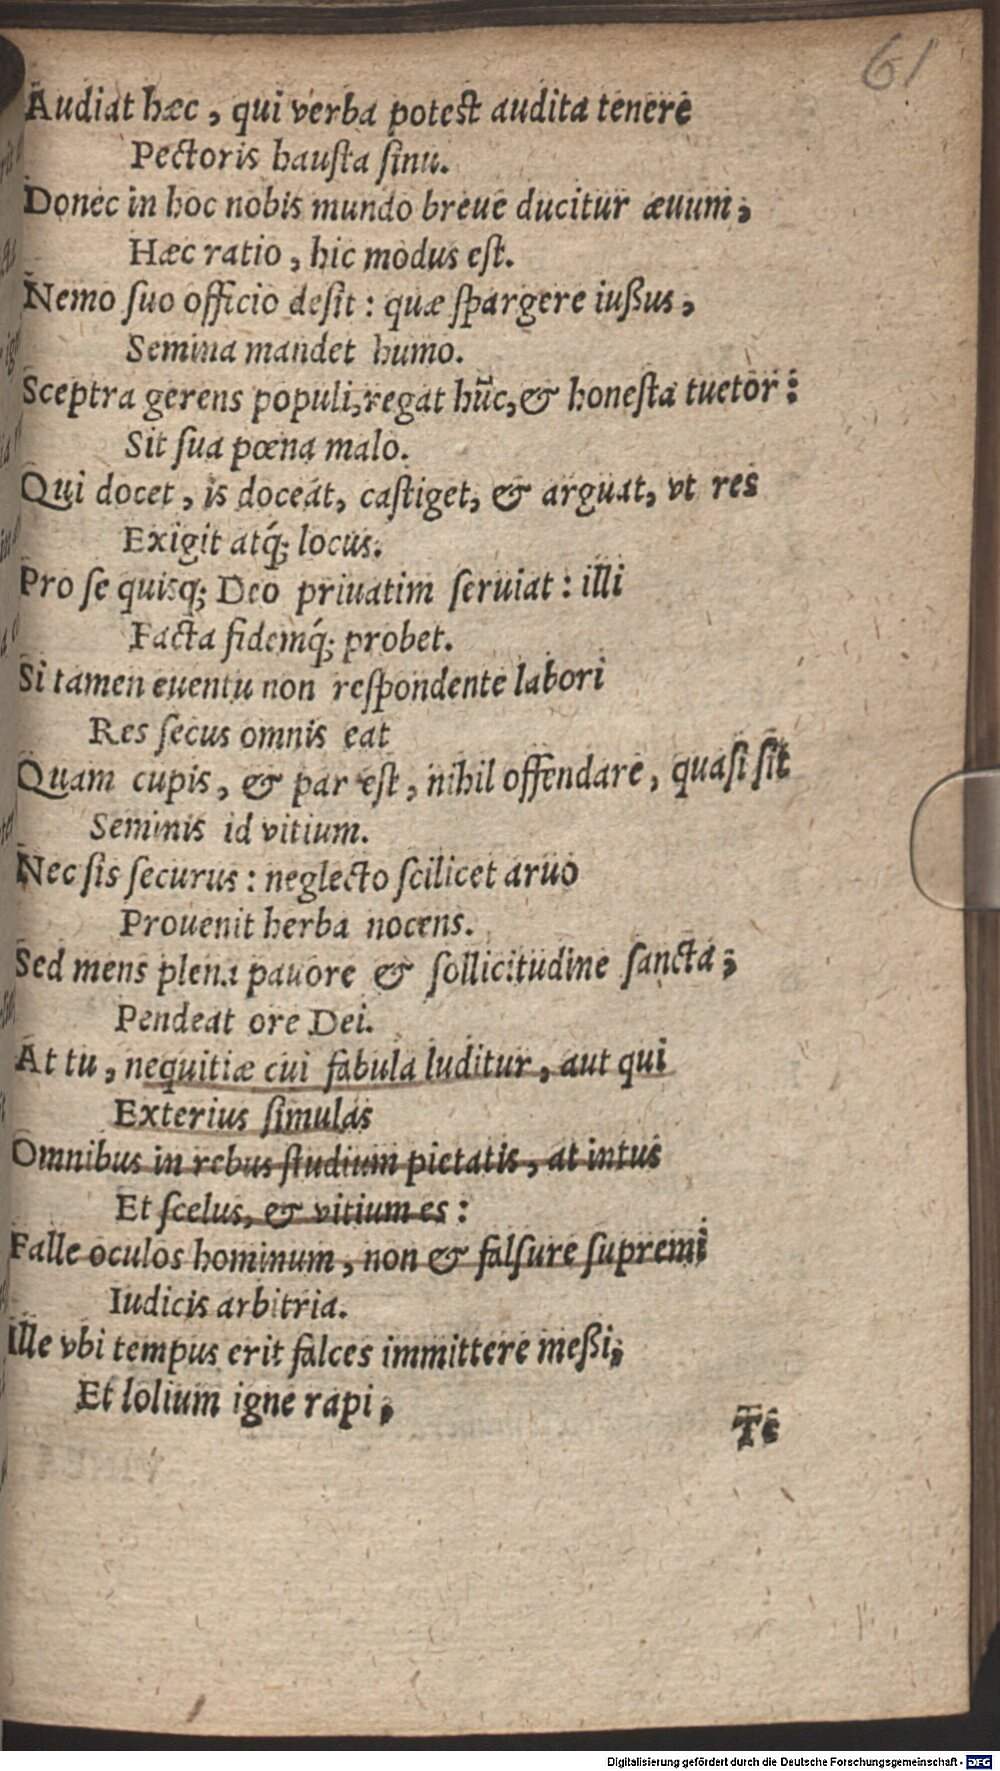 61
Audiat hæc, qui verba potest audita tenere
Pectoris hausta sinu.
Donec in hoc nobis mundo breue ducitur æuum;
Hæc ratio, hic modus est.
Nemo suo officio desit: quæ spargere iußus,
Semina mandet humo.
Sceptra gerens populi, regat hūc, & honesta tuetor:
Sit sua pœna malo.
Qui docet, is doceat, castiget, & arguat, vt res
Exigit atq́; locus.
Pro se quisq; Deo priuatim seruiat: illi
Facta fidemq́; probet.
Si tamen euentu non respondente labori
Res secus omnis eat
Quam cupis, & par est, nihil offendare, quasi sit
Seminis id vitium.
Nec sis securus: neglecto scilicet aruo
Prouenit herba nocens.
Sed mens plena pauore & sollicitudine sancta;
Pendeat ore Dei.
At tu, nequitiæ cui fabula luditur, aut qui
Exterius simulas
Omnibus in rebus studium pietatis, at intus
Et scelus, & vitium es:
Falle oculos hominum, non & falsure supremi
Iudicis arbitria.
Ille vbi tempus erit falces immittere meßi;
Et lolium igne rapi;
Te
Digitalisierung gefördert durch die Deutsche Forschungsgemeinschaft - DFG